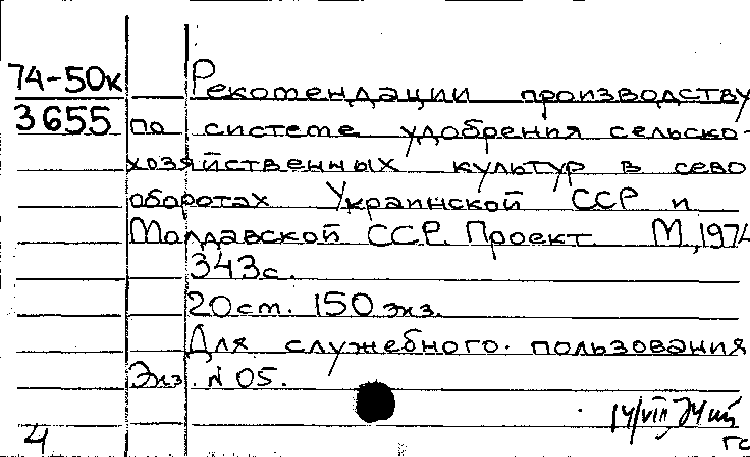 74-50к Рекомендации производству
3655 по системе удобрения сельско-
хозяйственных культур в сево
оборотах Украинской ССР и
Молдавской ССР. Проект М, 1974
343с.
20 ст. 150 экз.
Для служебного пользования
Экз. N 05.
14/VIII 74
4
гс